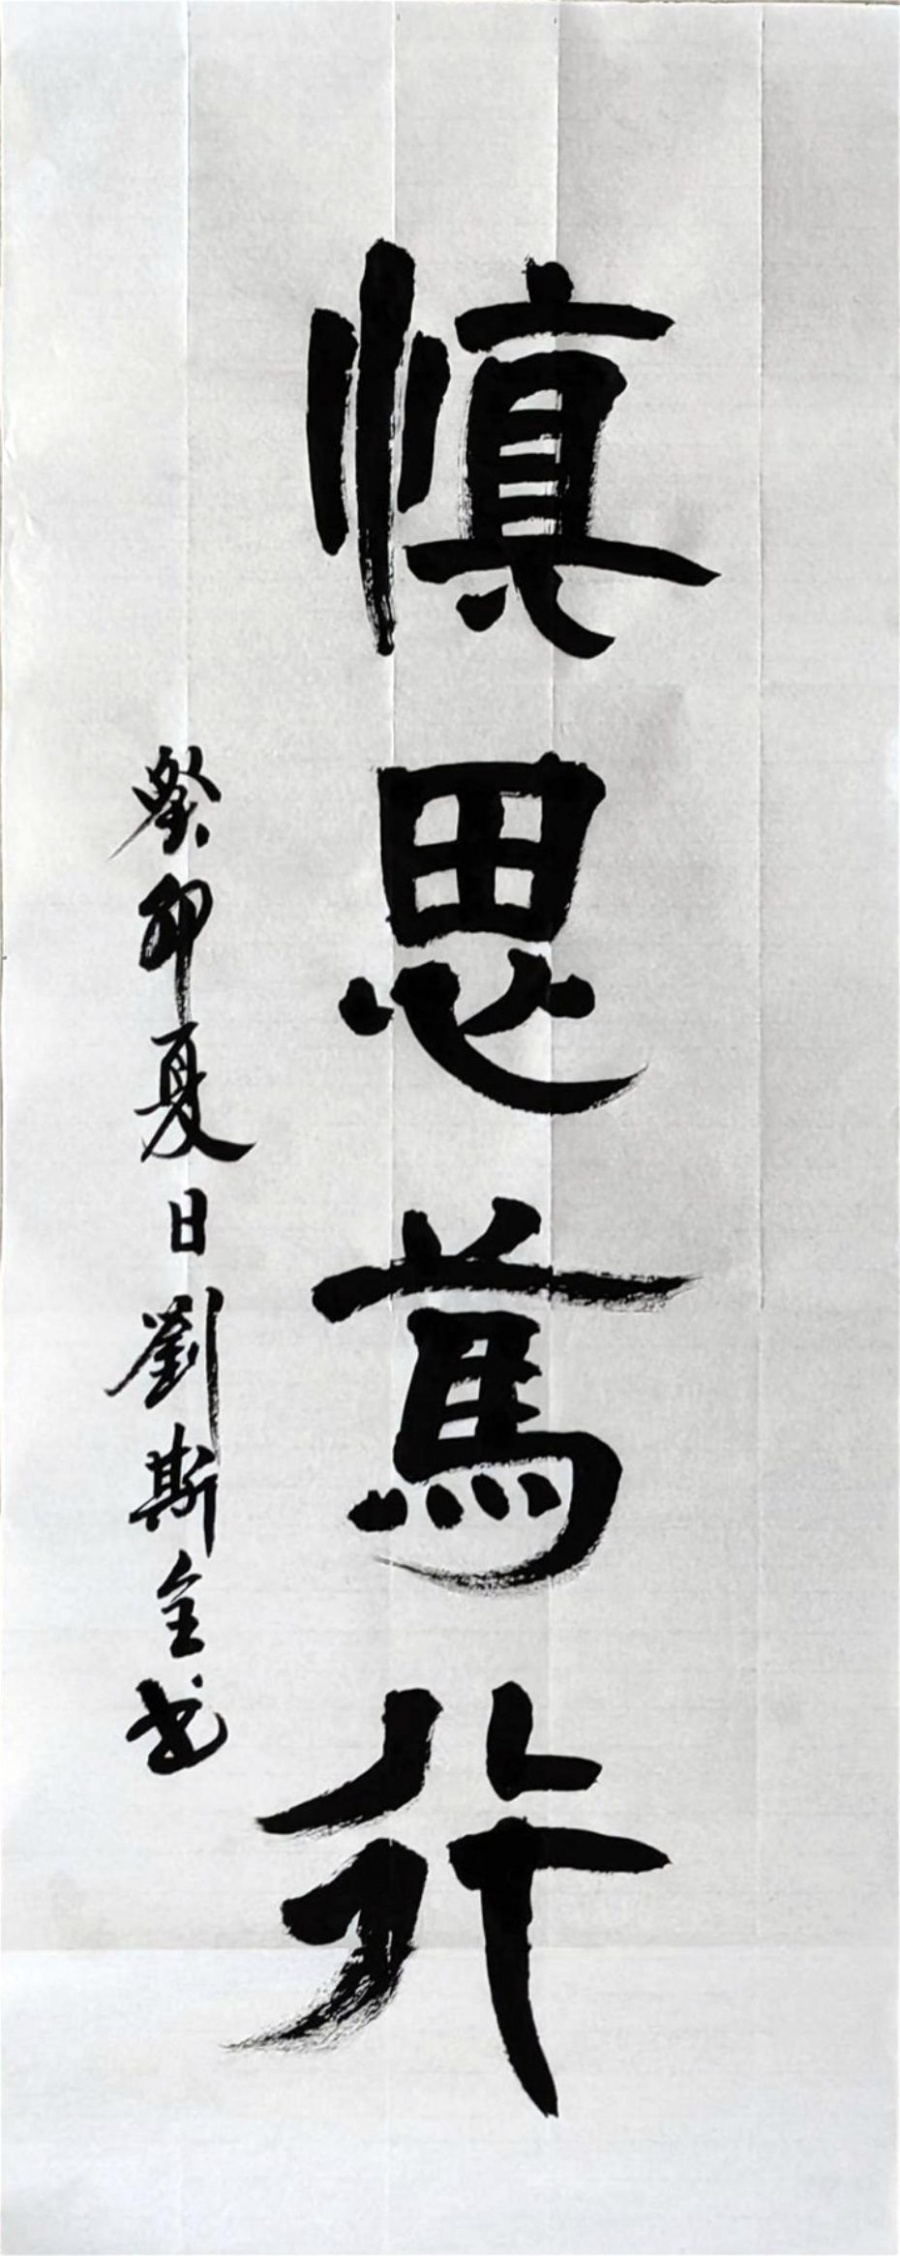 慎思篤行
癸卯夏日劉斯全書